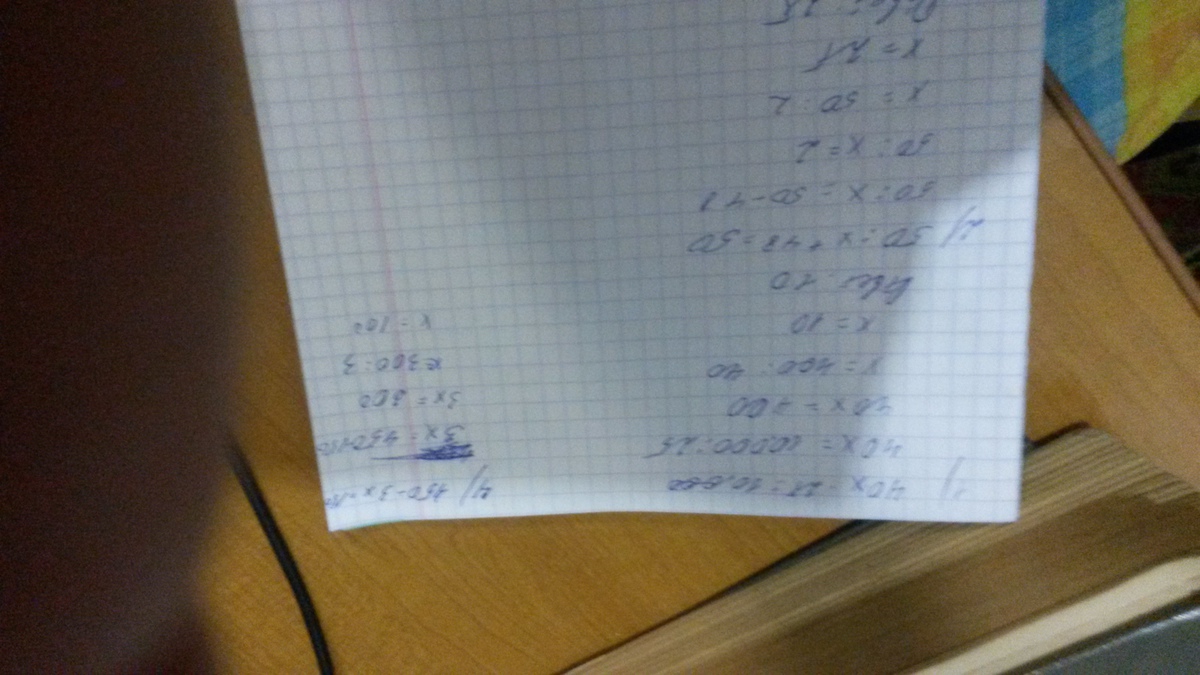 1) 40x · 25 = 10.000
40x = 10000 : 25
40x = 400
x = 400 : 40
x = 10
10
2) 50 : x + 48 = 50
50 : x = 50 - 48
50 : x = 2
x = 50 : 2
x = 25
25
4) 450 - 3x =
3x = 450
3x = 300
x=300 : 3
x = 100